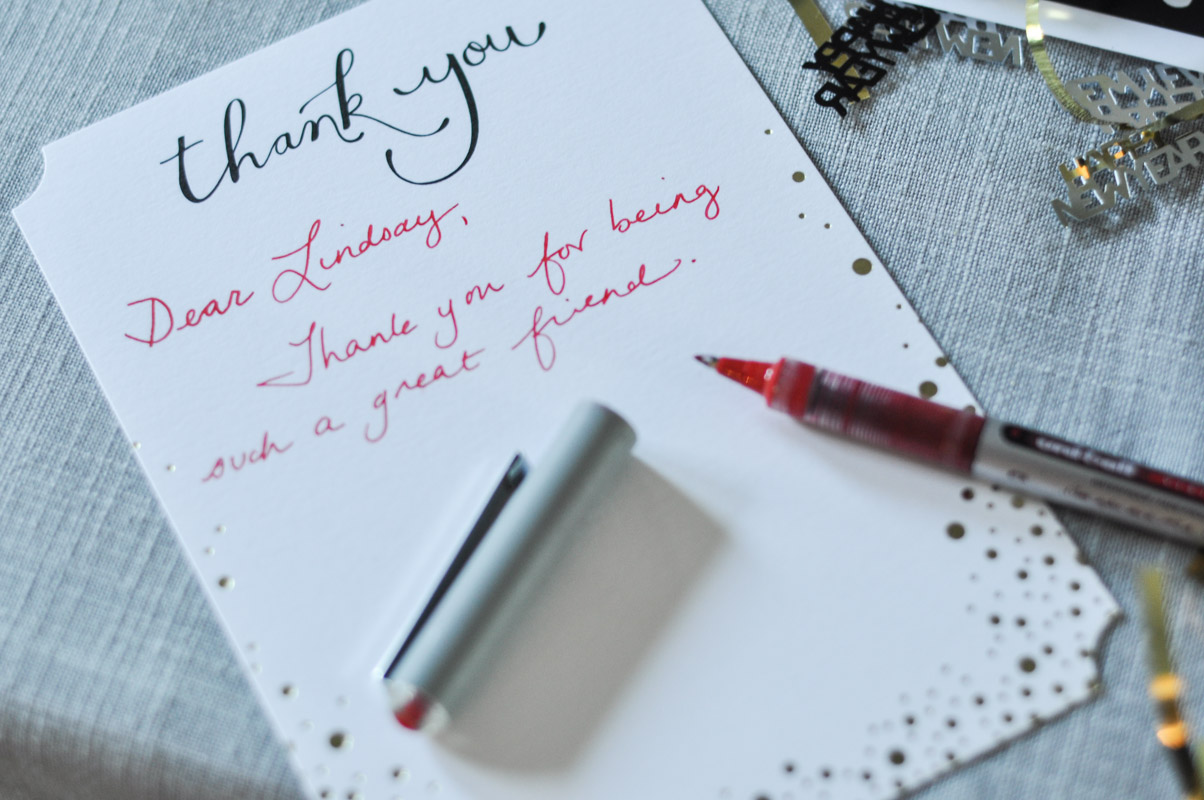 thank you
Dear Lindsay,
Thank you for being
such a great friend.
HAPPY
NEW YEAR
HAPPY
NEW YEAR